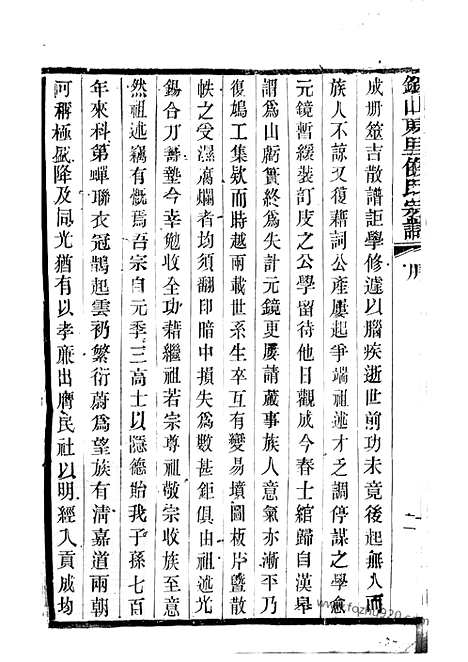 成册筮吉散譜詎學修遽以腦疾逝世前功未竟後起無人而
族人不諒又復藉詞公產屢起爭端祖述才乏調停謀之學愈
元鏡暫緩裝訂庋之公學留待他日觀成今春士綰歸自漢皋
謂爲山虧簣終爲失計元鏡更屢請蕆事族人意氣亦漸平乃
復鳩工集欵而時越兩載世系生卒互有變易墳圖板片曁散
帙之受濕腐爛者均須翻印暗中損失爲數甚鉅俱由祖述光
錫合力籌墊今幸勉收全功藉繼祖若宗尊祖敬宗收族至意
然祖述竊有慨焉吾宗自元季三高士以隱德貽我子孫七百
年來科第蟬聯衣冠鵲起雲礽繁衍蔚爲望族有淸嘉道兩朝
可稱極盛降及同光猶有以孝廉出膺民社以明經入貢成均
山東里倪氏宗譜
www.fqzhu920.com